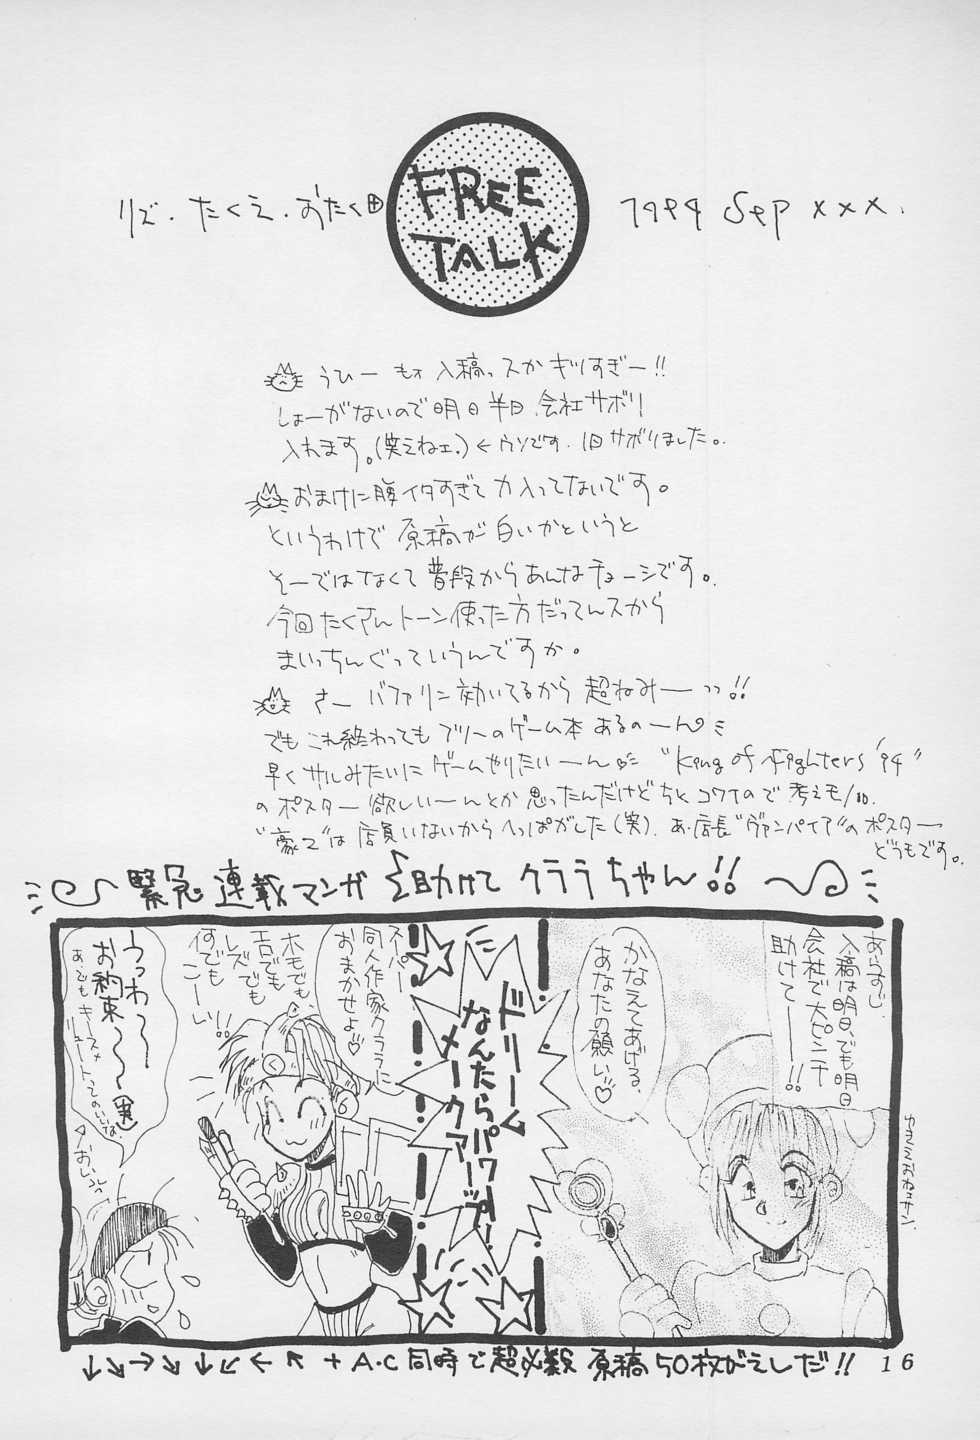 リズ・たくえ・おたく
FREE
TALK
1994 Sep xxx.
うひー もォ入稿っスかギリすぎー!!
しょーがないので明日半日、会社サボリ
入れます。(笑えねェ。)←ウソです。1日サボリました。
おまけに腹イタすぎて力入ってないです。
というわけで原稿が白いかというと
そーではなくて普段からあんなチョーシです。
今回たくさんトーン使った方だってんスから
まいっちんぐっていうんですか。
さー バファリン効いてるから超ねみーっっ!!
でもこれ終わってもフリーのゲーム本あるのーん
早くサルみたいにゲームやりたいーん "King of Fighters '94"
のポスター欲しいーんとか思ったんだけどちとコワイので考えモノ。
"豪で"は店員いないからへっぱがした(笑). あ、店長"ヴァンパイア"のポスター
どうもです。
緊急連載マンガ 助けてクララちゃん!!
あらすじ、
入稿は明日、でも明日
会社で大ピンチ
助けてー!!
かなえてあげる、
あなたの願い♡
ドリーム
なんたらパワー
メークアーップ!
スーパー
同人作家クララに
おまかせよ♡
ホモでも、
エロでも
レズでも
何でも
こーい!!
うっわ〜
お約束〜(笑)
↓↘→↘↓↙←↖+A・C同時で超必殺 原稿50枚がえしだ!!
16